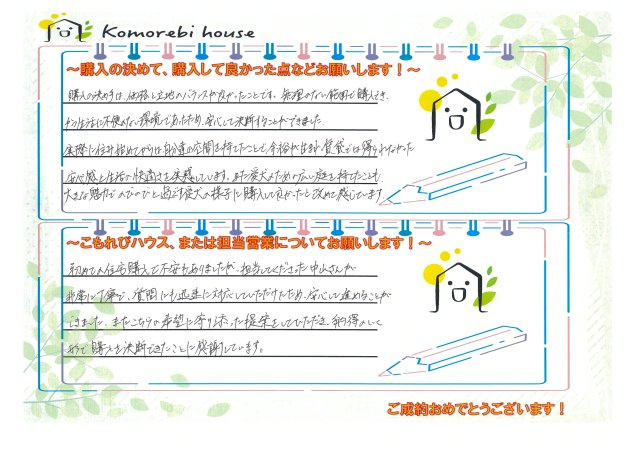 Komorebi house
～購入の決めて、購入して良かった点などお願いします！～
購入の決め手は、価格と立地のバランスが良かったことです。無理のない範囲で購入でき、
かつ生活に不便のない環境であったため、安心して決断することができました。
実際に住み始めてからは自分達の空間を持てたことで余裕が生まれ、賃貸では得られなかった
安心感と生活の快適さを実感しています。また愛犬のための広い庭を持てたことも
大きな魅力でのびのびと過ごす愛犬の様子に購入して良かったと改めて感じています
～こもれびハウス、または担当営業についてお願いします！～
初めての住宅購入で不安もありましたが、担当してくださった中山さんが
非常に丁寧で、質問にも迅速に対応していただけたため、安心して進めることが
できました。またこちらの希望に寄り添った提案をしていただき、納得のいく
形で購入を決断できたことに感謝しています。
ご成約おめでとうございます！